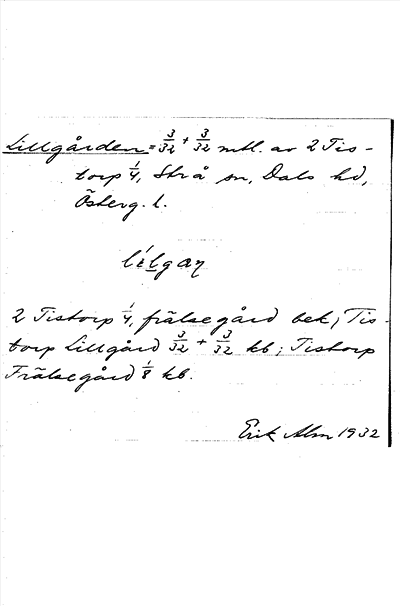 Lillgården = 3/32 + 3/32 mtl. av 2 Tis-
torp 1/4, Strå sn, Dals hd,
Österg. l.
2 Tistorp 1/4, frälsegård bek; Tis-
torp Lillgård 3/32 + 3/32 kb; Tistorp
Frälsegård 1/8 kb.
Erik Alm 1932